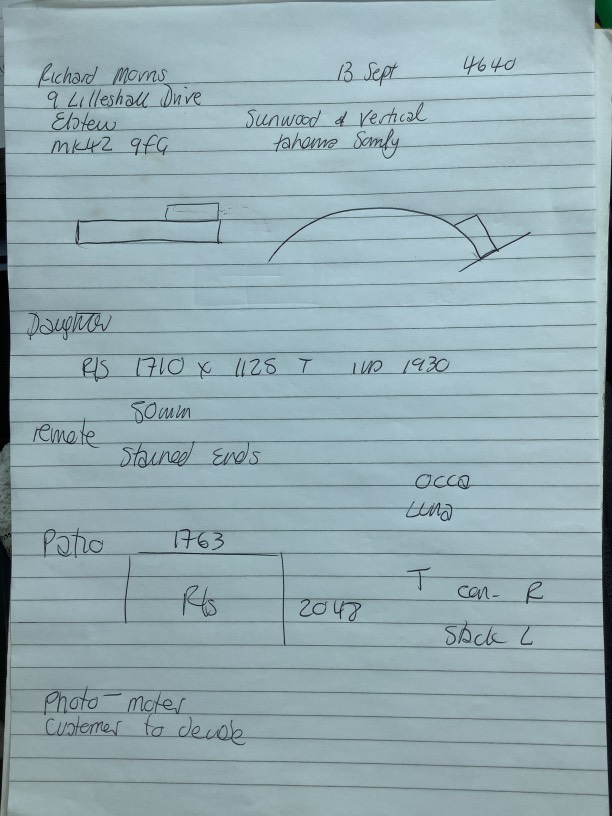 Richard Morris 13 Sept 4640
9 Lilleshall Drive
Elstow Sunwood & Vertical
MK42 9FG tahoma Somfy
Daughter
R/S 1710 x 1128 T 1930
50mm
remote
Stained Ends
Occa
Luna
Patio 1763
R/s 2048
T con- R
Stack L
Photo - moter
Customer to decide